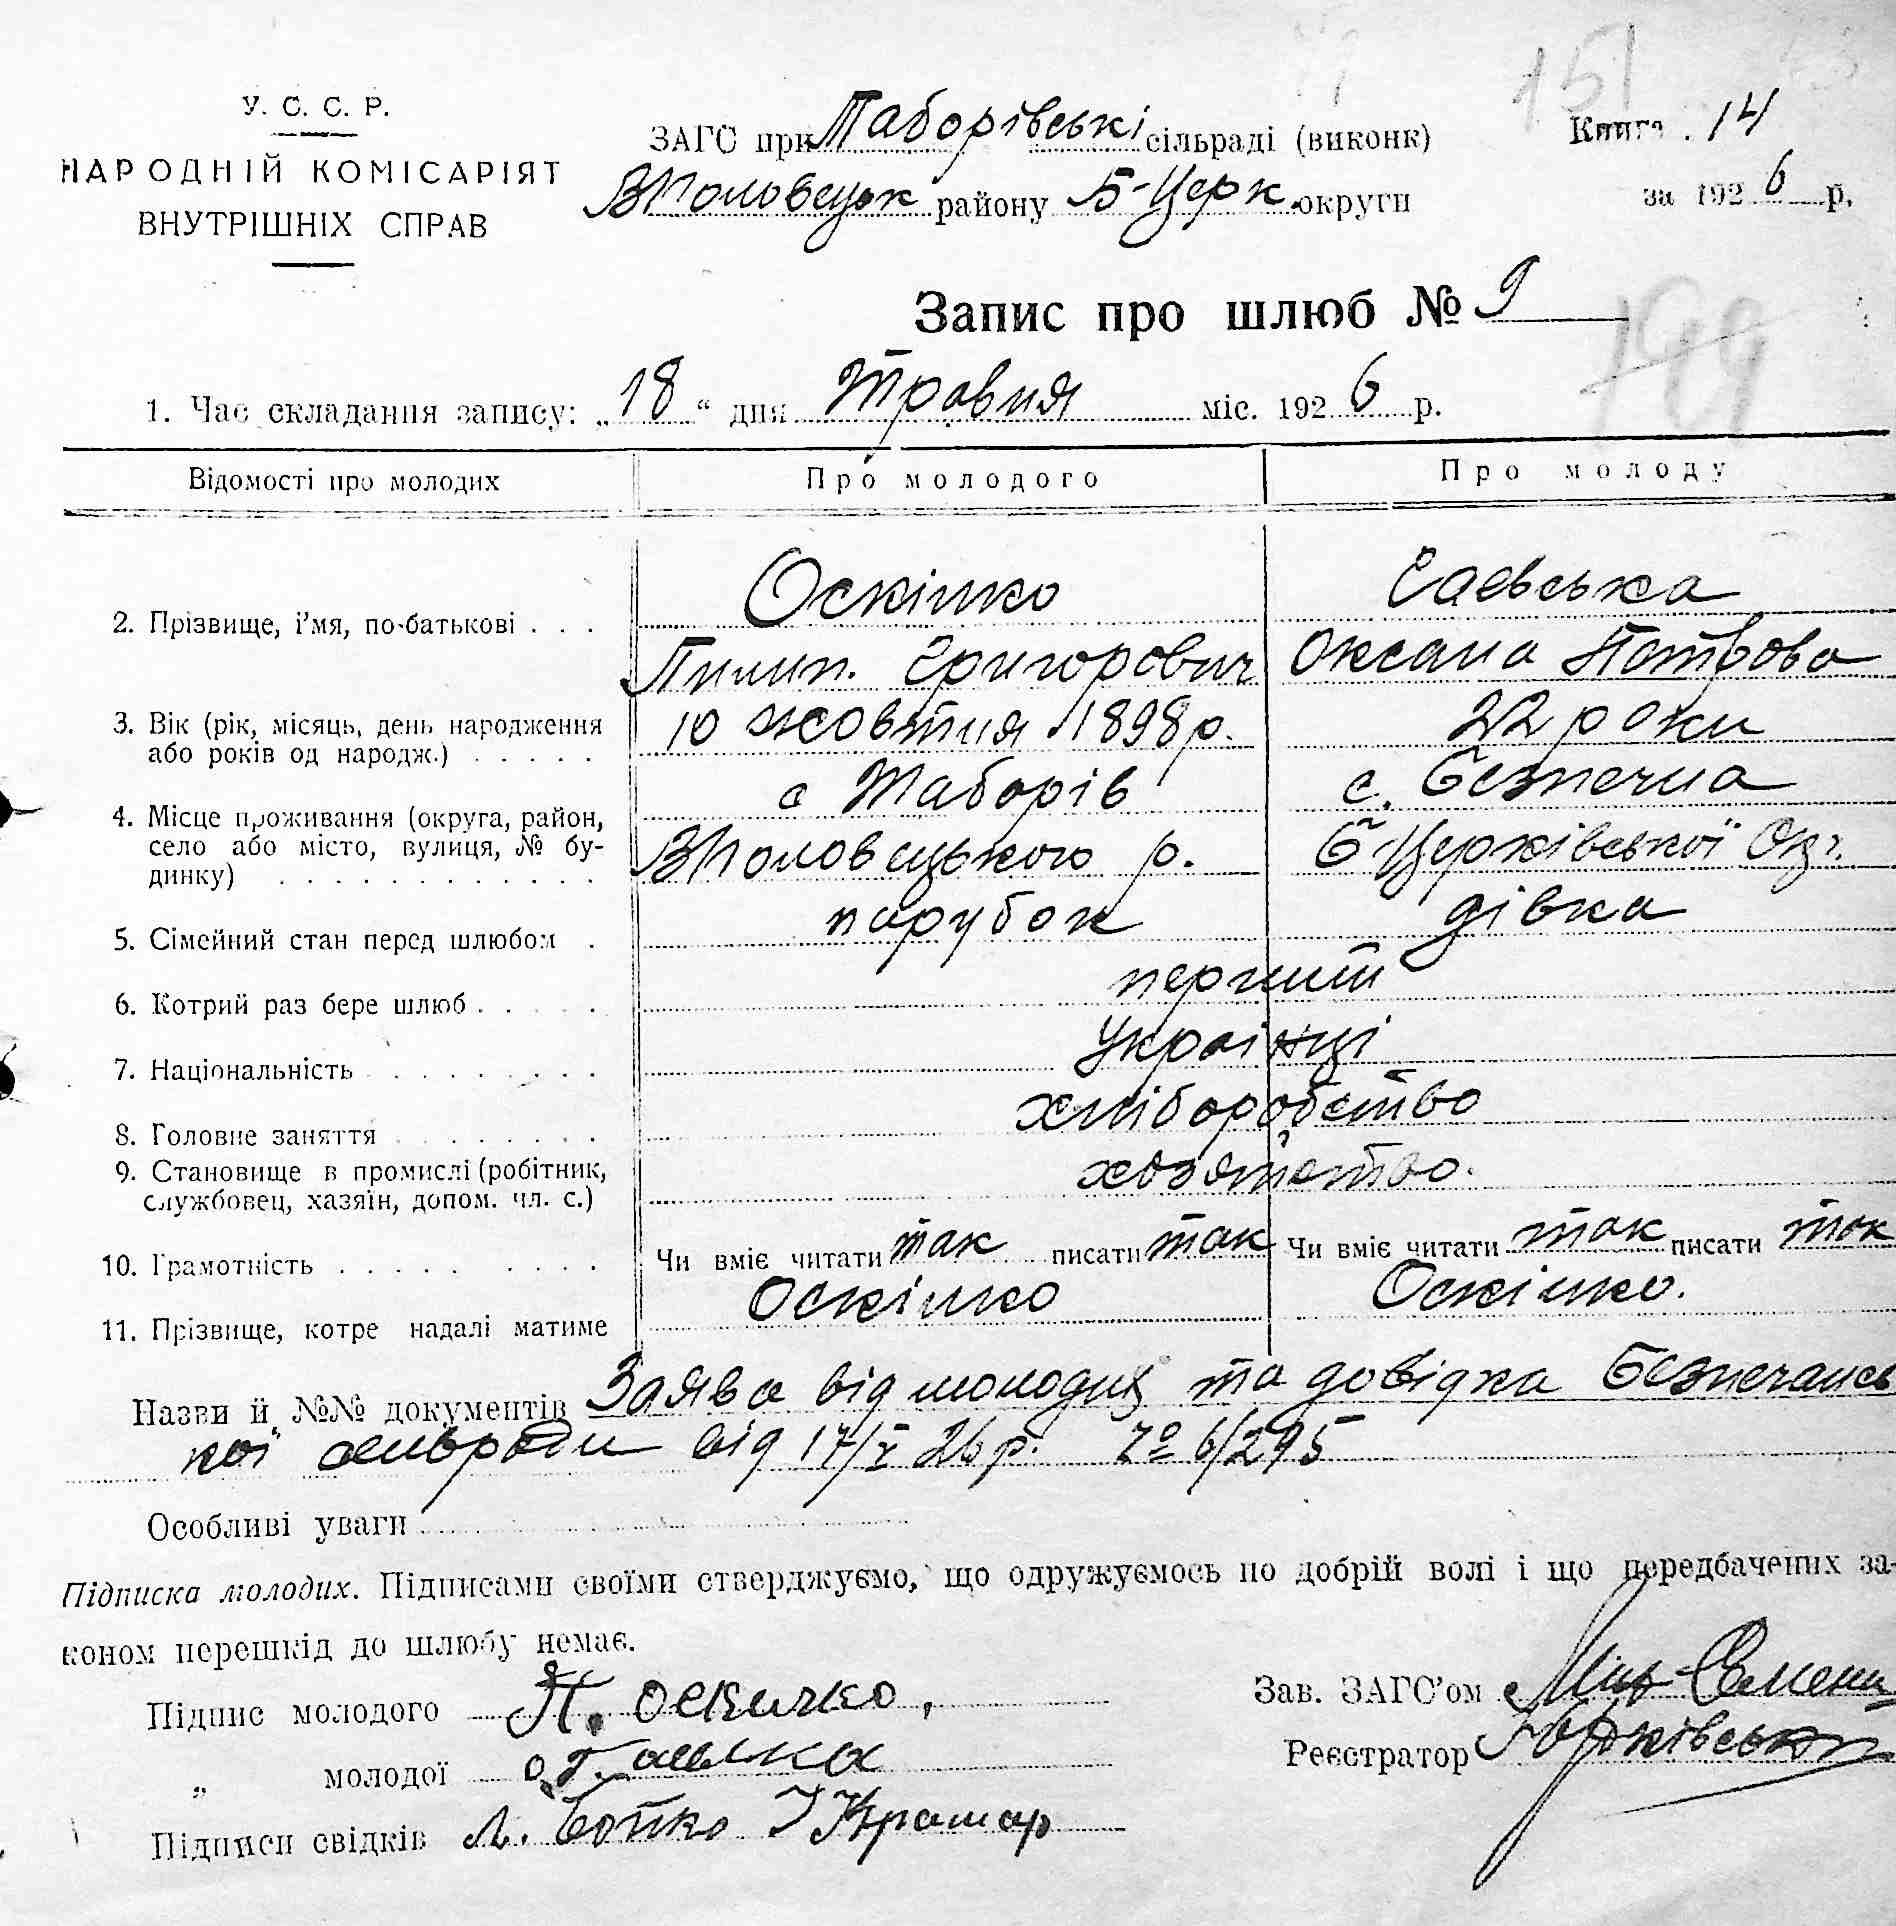 151
У. С. С. Р.
НАРОДНІЙ КОМІСАРІЯТ
ВНУТРІШНІХ СПРАВ
ЗАГС при Таборівські сільраді (виконк)
ВПоловецьк району Б-Церк. округи
Книга 14
за 1926 р.
Запис про шлюб № 9
199
1. Час складання запису: „18“ дня травня міс. 1926 р.
Відомості про молодих
Про молодого
Про молоду
2. Прізвище, і'мя, по-батькові . . .
Оскілко
Пилип. Григорович
Гаєвська
Оксана Петрова
3. Вік (рік, місяць, день народження
або років од народж.) . . . . .
10 жовтня 1898 р.
22 роки
4. Місце проживання (округа, район,
село або місто, вулиця, № бу-
динку) . . . . . . . . . . . .
с Таборів
ВПоловецького р.
с. Безпечна
Б Церківської Окр.
5. Сімейний стан перед шлюбом .
парубок
дівка
6. Котрий раз бере шлюб . . . . .
перший
7. Національність . . . . . . . .
Українці
8. Головне заняття . . . . . . .
хліборобство
9. Становище в промислі (робітник,
службовец, хазяїн, допом. чл. с.)
хозяйство.
10. Грамотність . . . . . . . . .
Чи вміє читати так писати так
Чи вміє читати так писати так
11. Прізвище, котре надалі матиме
Оскілко
Оскілко.
Назви й №№ документів Заява від молодих та довідка Безпечансь
кої сільради від 17/V 26 р. № 6/295
Особливі уваги
Підписка молодих. Підписами своїми стверджуємо, що одружуємось по добрій волі і що передбачених за-
коном перешкід до шлюбу немає.
Підпис молодого П. Оскилко,
„ молодої О.
Підписи свідків Л. Бойко І Крамар
Зав. ЗАГС'ом
Реєстратор